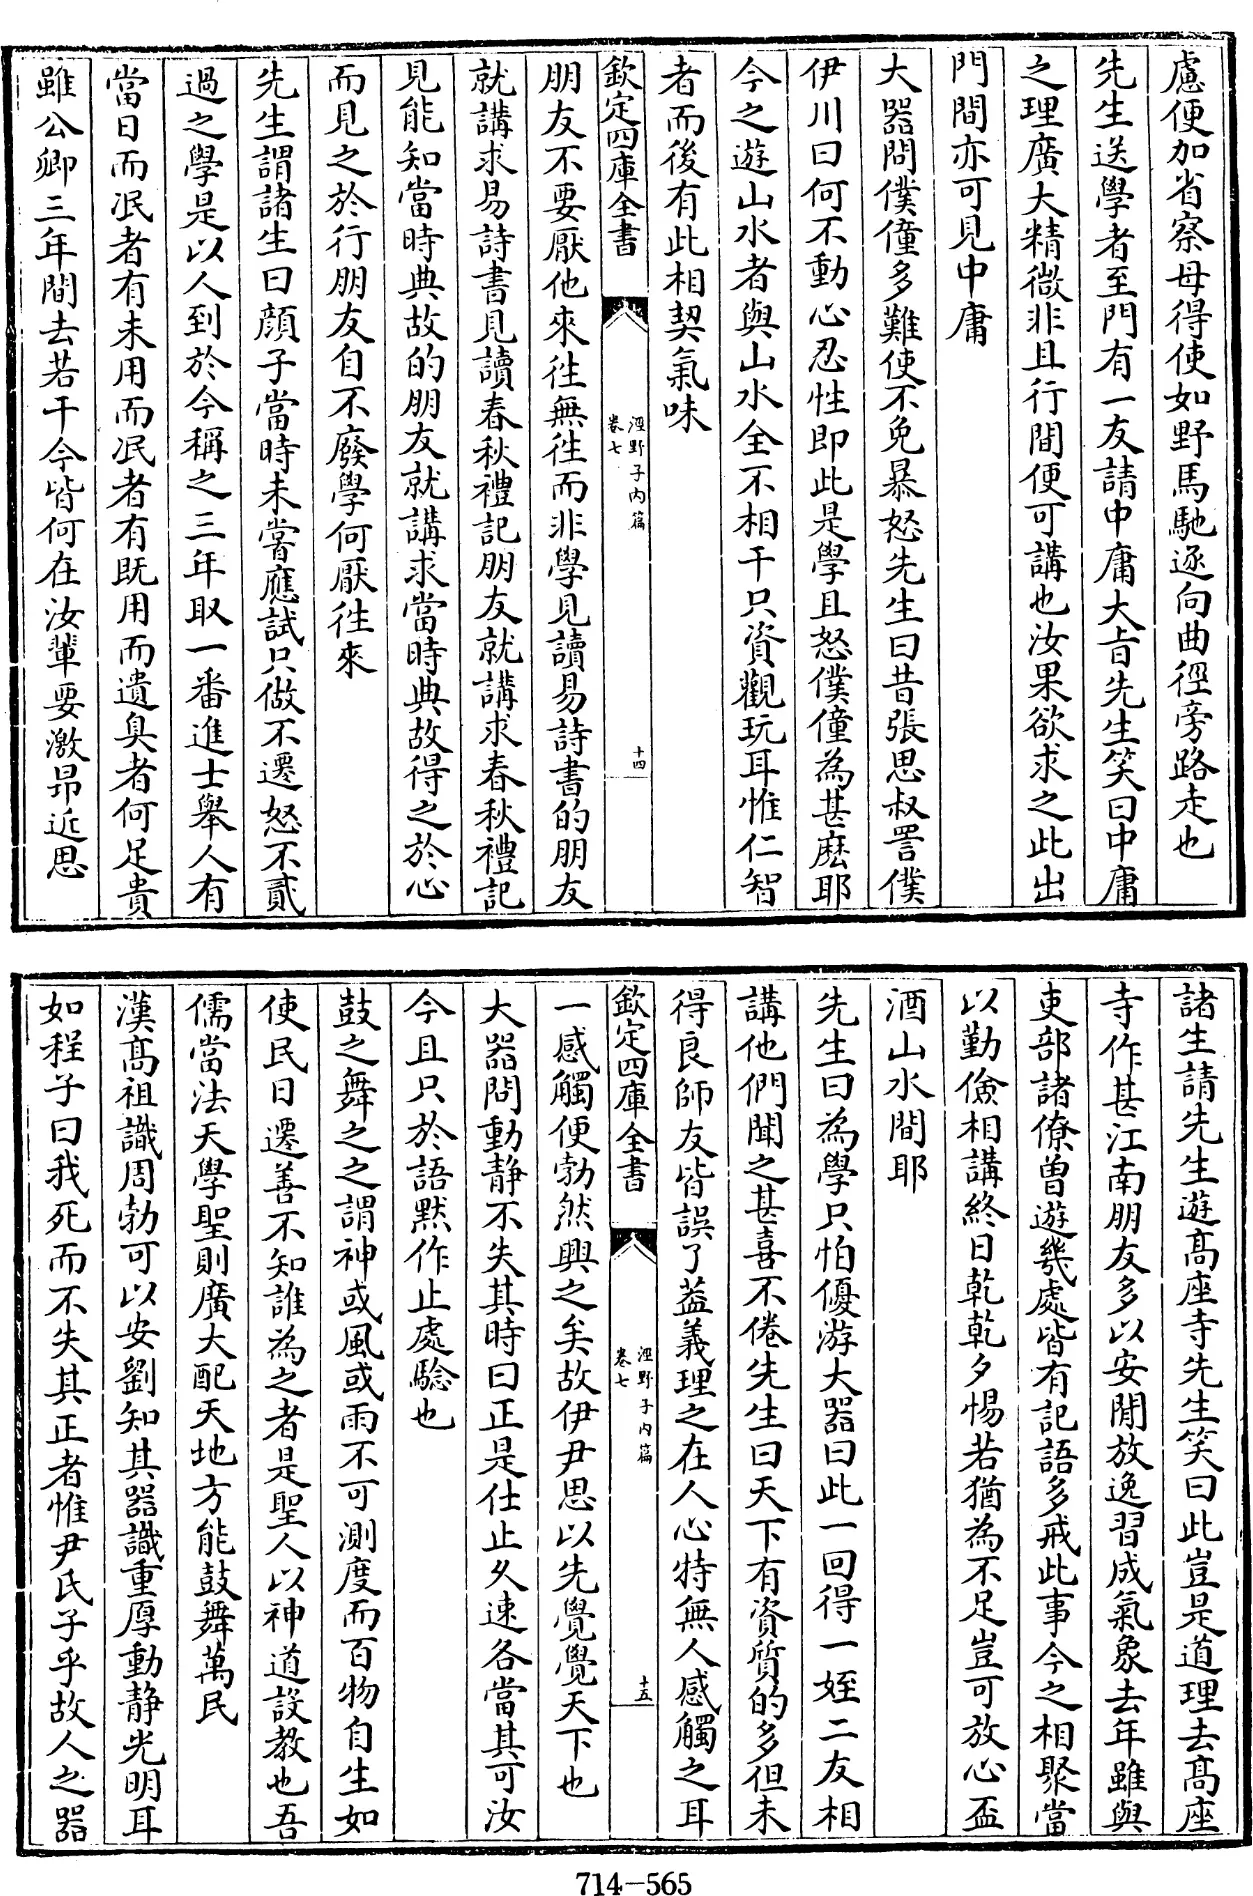 慮便加省察母得使如野馬馳逐向曲徑旁路走也
先生送學者至門有一友請中庸大旨先生笑曰中庸
之理廣大精微非且行間便可講也汝果欲求之此出
門間亦可見中庸
大器問僕僮多難使不免暴怒先生曰昔張思叔詈僕
伊川曰何不動心忍性即此是學且怒僕僮為甚麽耶
今之遊山水者與山水全不相干只資觀玩耳惟仁智
者而後有此相契氣味
欽定四庫全書
涇野子內篇
卷七
十四
朋友不要厭他來徃無徃而非學見讀易詩書的朋友
就講求易詩書見讀春秋禮記朋友就講求春秋禮記
見能知當時典故的朋友就講求當時典故得之於心
而見之於行朋友自不廢學何厭徃來
先生謂諸生曰顔子當時未嘗應試只做不遷怒不貳
過之學是以人到於今稱之三年取一番進士舉人有
當日而泯者有未用而泯者有既用而遺臭者何足貴
雖公卿三年間去若干今皆何在汝輩要激昻近思
諸生請先生遊髙座寺先生笑曰此豈是道理去髙座
寺作甚江南朋友多以安閒放逸習成氣象去年雖與
吏部諸僚曽遊幾處皆有記語多戒此事今之相聚當
以勤儉相講終日乾乾夕惕若猶為不足豈可放心盃
酒山水間耶
先生曰為學只怕優游大器曰此一回得一姪二友相
講他們聞之甚喜不倦先生曰天下有資質的多但未
得良師友皆誤了葢義理之在人心特無人感觸之耳
欽定四庫全書
涇野子內篇
卷七
十五
一感觸便勃然興之矣故伊尹思以先覺覺天下也
大器問動静不失其時曰正是仕止久速各當其可汝
今且只於語黙作止處驗也
鼓之舞之之謂神或風或雨不可測度而百物自生如
使民日遷善不知誰為之者是聖人以神道設教也吾
儒當法天學聖則廣大配天地方能鼓舞萬民
漢髙祖識周勃可以安劉知其器識重厚動静光明耳
如程子曰我死而不失其正者惟尹氏子乎故人之器
714-565